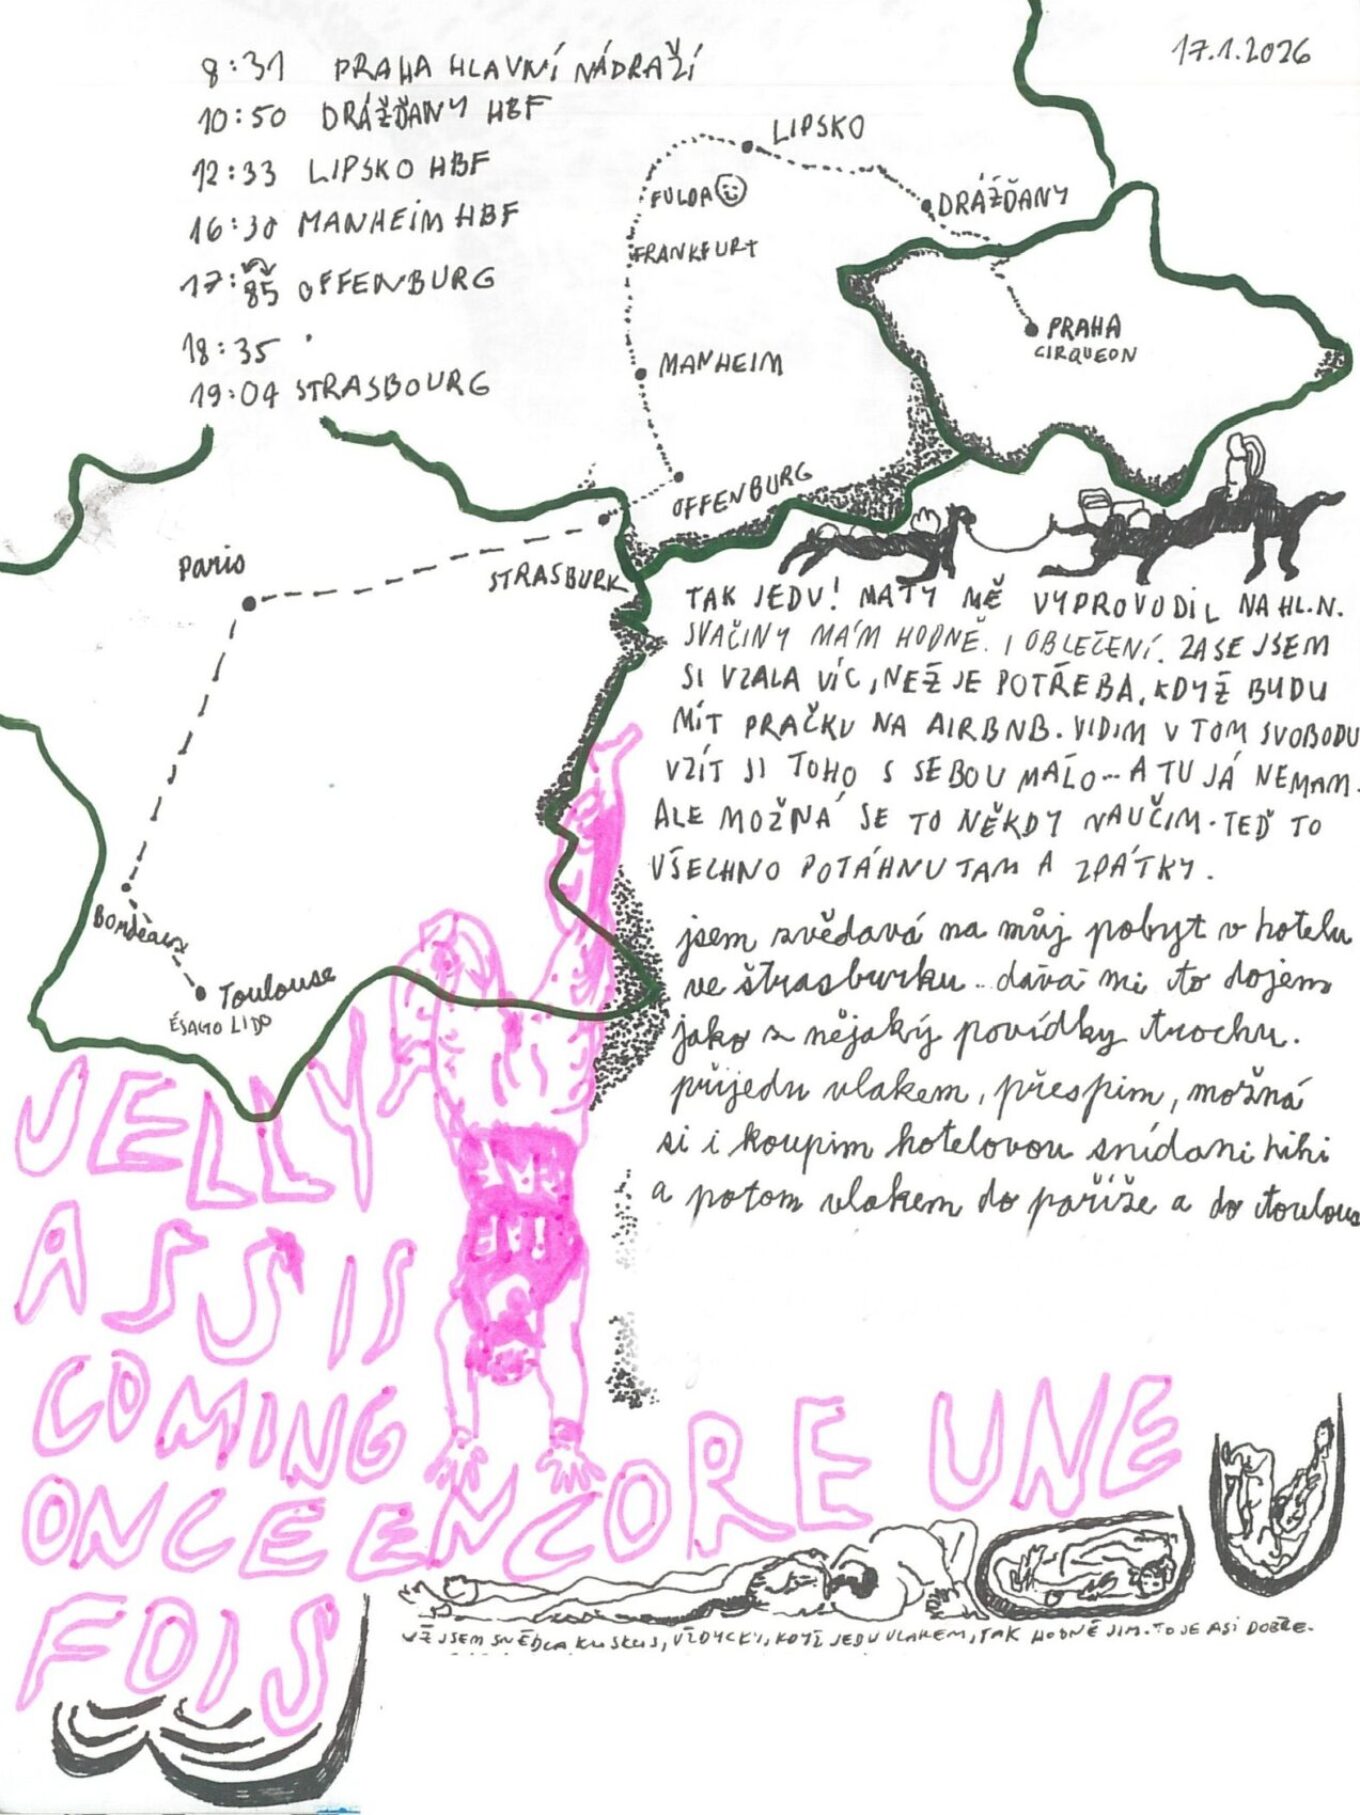 17.1.2026
8:31 PRAHA HLAVNÍ NÁDRAŽÍ
10:50 DRÁŽĎANY HBF
12:33 LIPSKO HBF
16:30 MANHEIM HBF
17: OFFENBURG
18:35
19:04 STRASBOURG
LIPSKO
FULDA
DRÁŽĎANY
FRANKFURT
PRAHA
CIRQUEON
MANHEIM
OFFENBURG
STRASBURK
Paris
Bordeaux
Toulouse
ÉSACTO LIDO
TAK JEDU! MATY MĚ VYPROVODIL NA HL.N.
SVAČINY MÁM HODNĚ. I OBLEČENÍ. ZASE JSEM
SI VZALA VÍC, NEŽ JE POTŘEBA, KDYŽ BUDU
MÍT PRAČKU NA AIRBNB. VIDIM V TOM SVOBODU
VZÍT SI TOHO S SEBOU MÁLO... A TU JÁ NEMAM.
ALE MOŽNÁ SE TO NĚKDY NAUČIM. TEĎ TO
VŠECHNO POTÁHNU TAM A ZPÁTKY.
jsem zvědavá na můj pobyt v hotelu
ve štrasburku.. dává mi to dojem
jako z nějaký povídky trochu.
přijedu vlakem, přespim, možná
si i koupim hotelovou snídani hihi
a potom vlakem do paříže a do toulous
JELLY
ASS IS
COMING
ONCE ENCORE UNE
FOIS
UŽ JSEM SNĚDLA KUSKUS, VŽDYCKY, KDYŽ JEDU VLAKEM, TAK HODNĚ JIM. TO JE ASI DOBŘE.